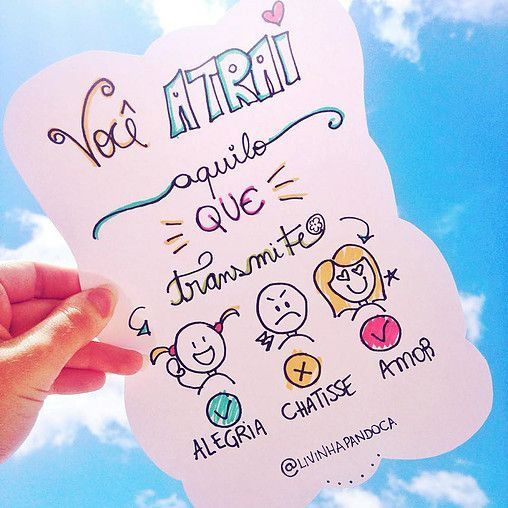 Você ATRAI
aquilo
QUE
transmite
ALEGRIA CHATISSE AMOR
@LIVINHAPANDOCA